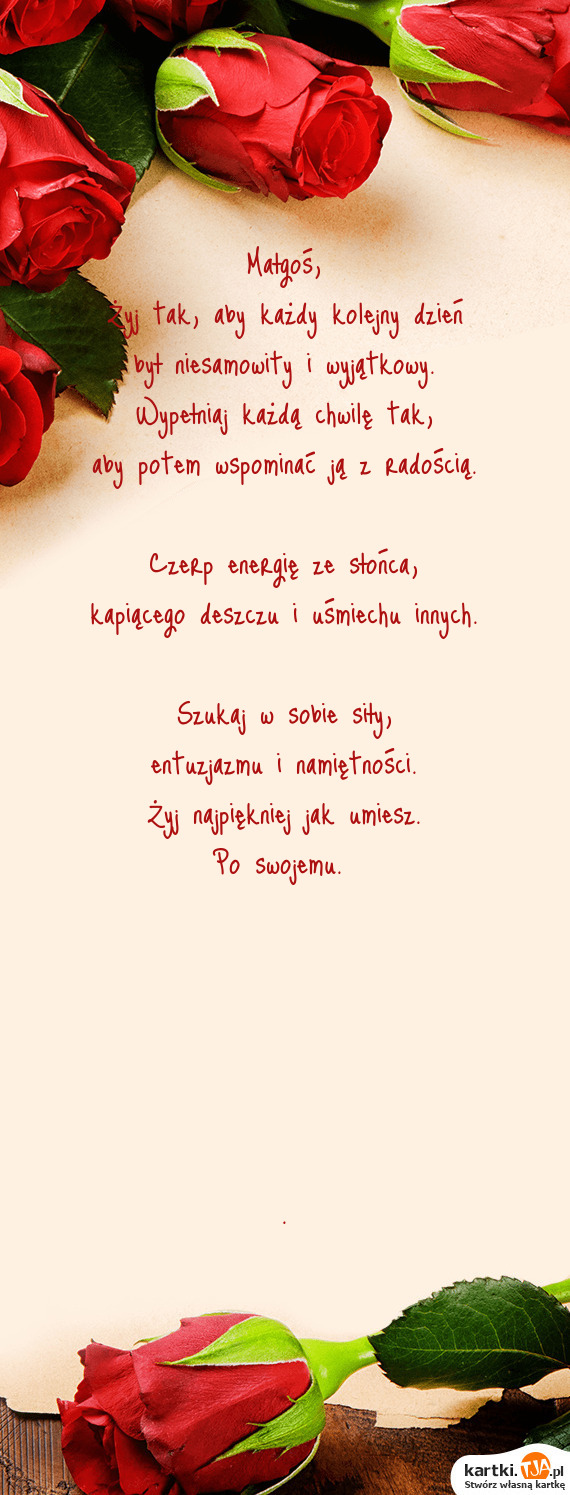 Małgoś,
Żyj tak, aby każdy kolejny dzień
był niesamowity i wyjątkowy.
Wypełniaj każdą chwilę tak,
aby potem wspominać ją z radością.
Czerp energię ze słońca,
kapiącego deszczu i uśmiechu innych.
Szukaj w sobie siły,
entuzjazmu i namiętności.
Żyj najpiękniej jak umiesz.
Po swojemu.
.
kartki.TJA.pl
Stwórz własną kartkę